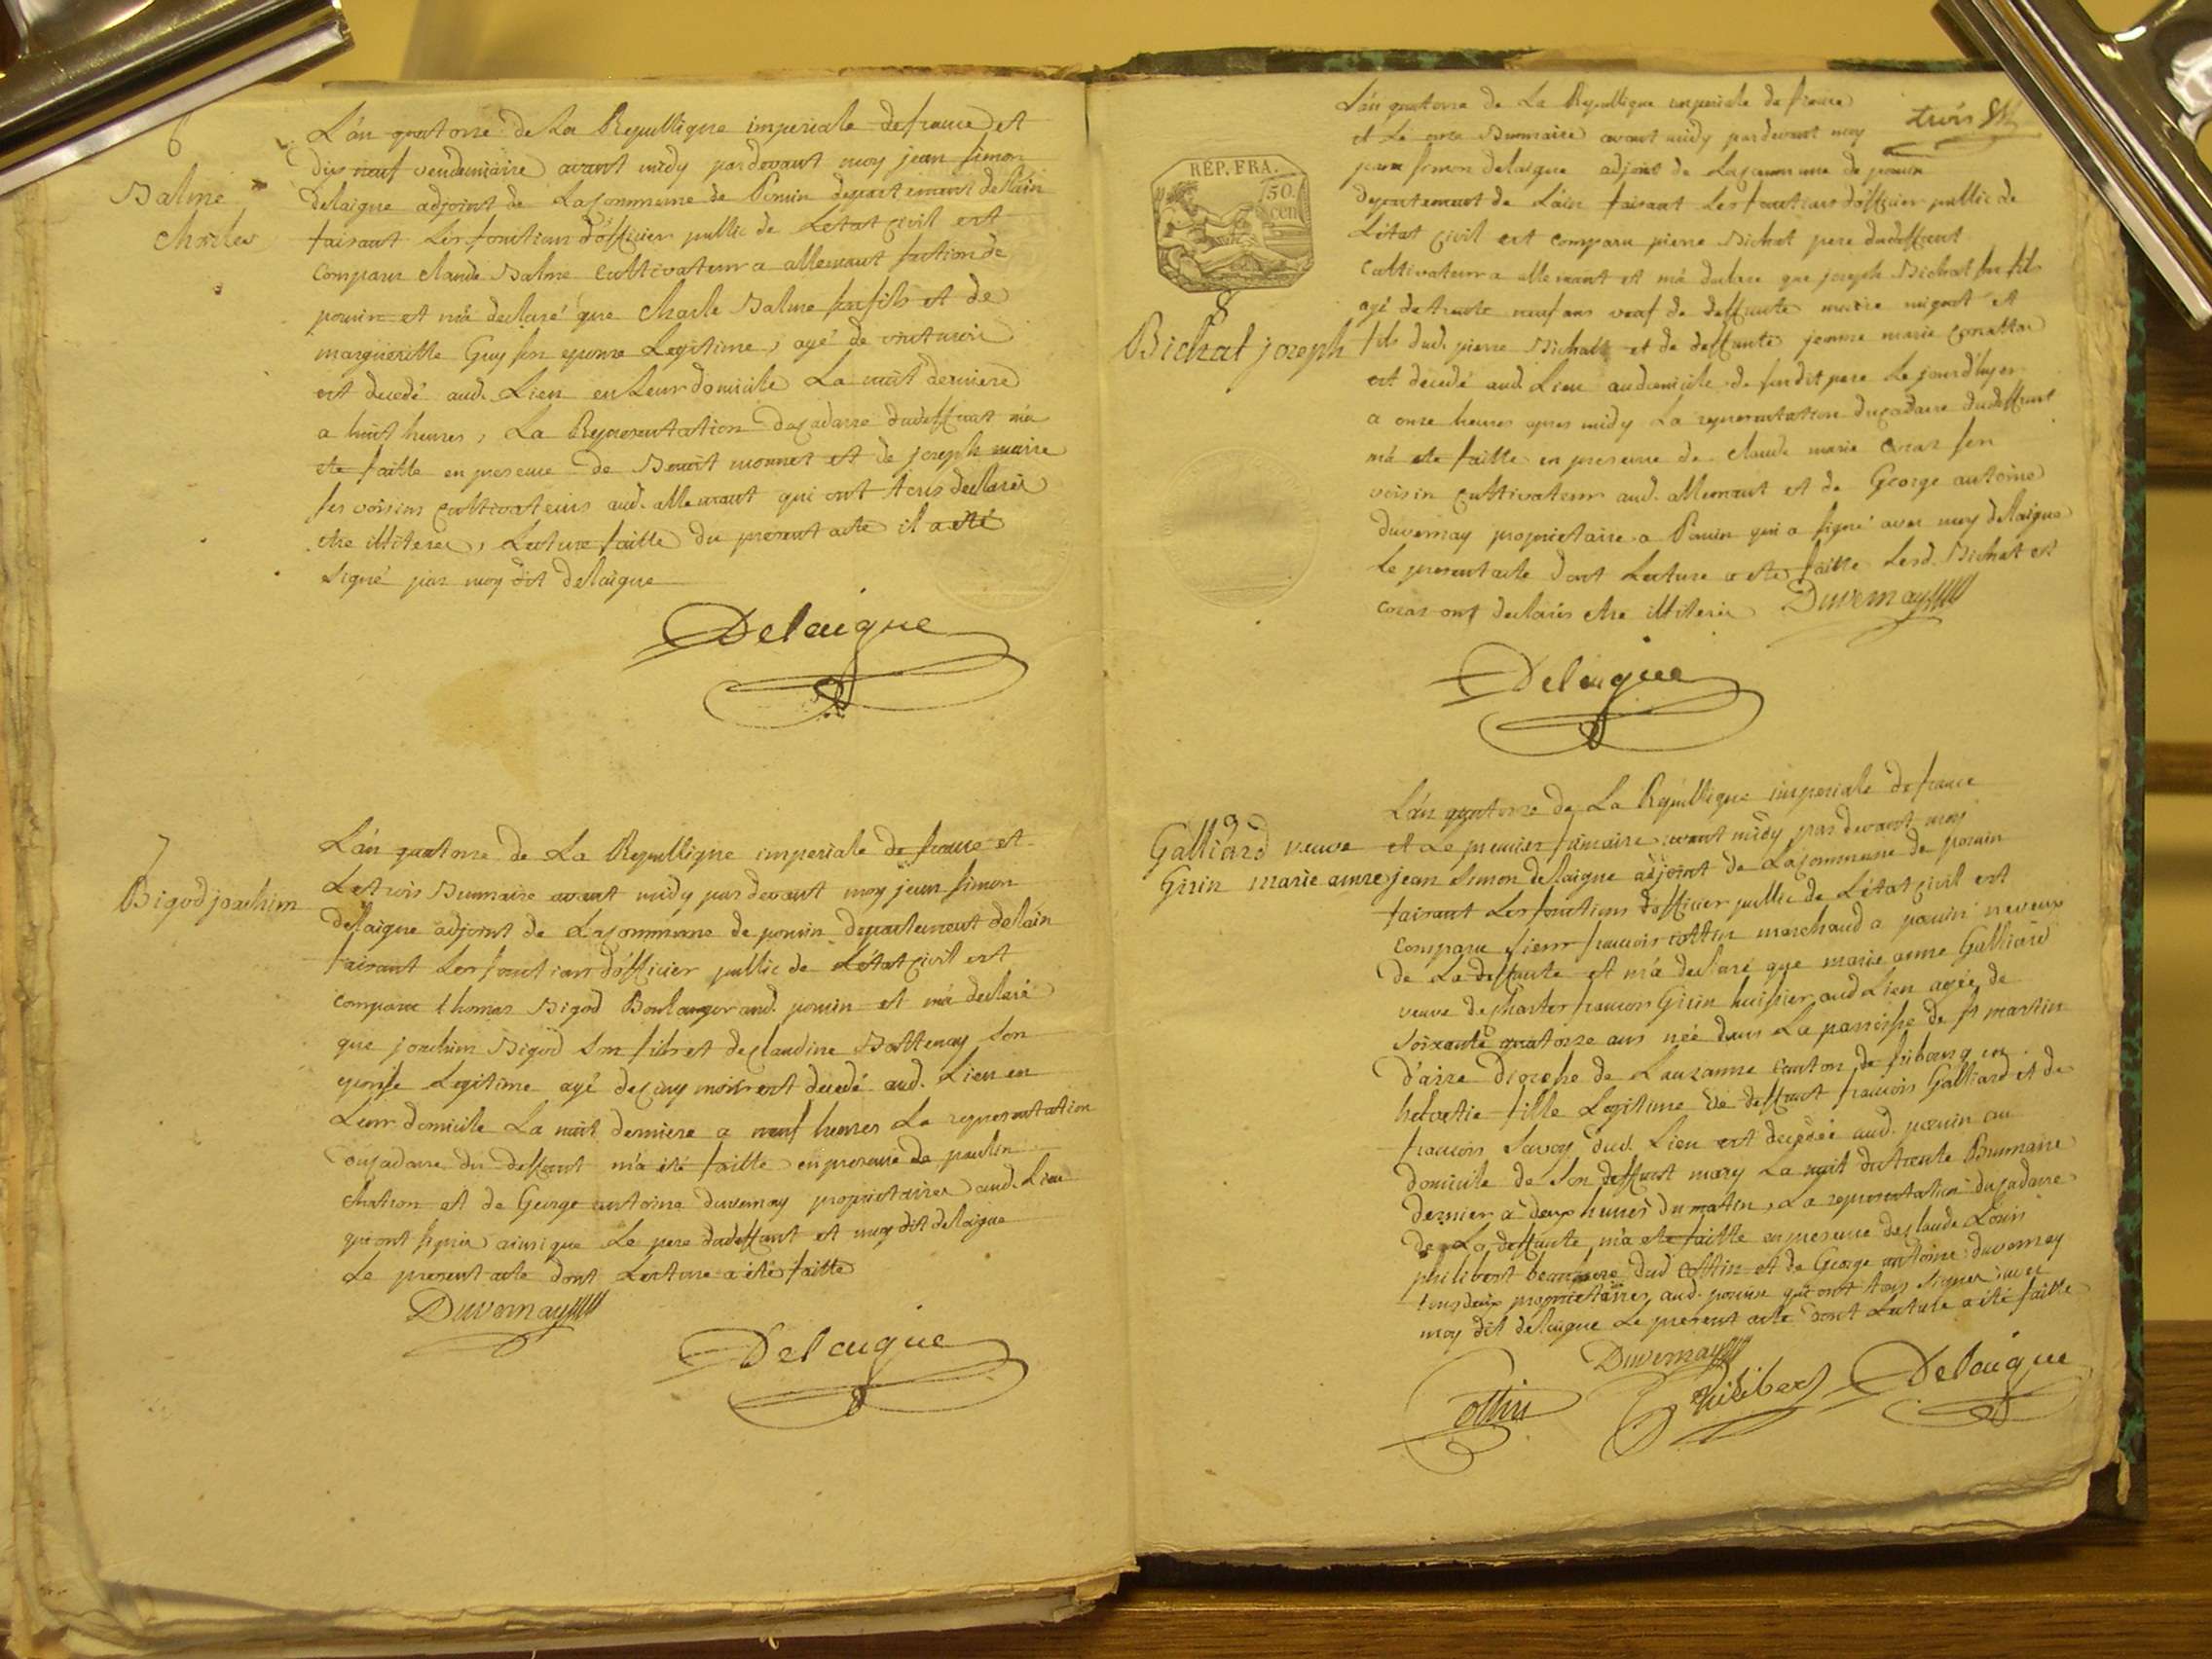 6
L'an quatorze de La Republique imperiale de france et
dix neuf vendemiaire avant midy pardevant moy jean simon
Balme
Charles
delaigne adjoint de La commune de Poncin departement de l'ain
faisant Les fonctions d'officier public de L'etat civil est
comparu claude Balme cultivateur a allement section de
poncin et m'a declaré que Charle Balme son fils et de
margueritte Guy son epouse Legitime, agé de
est decedé aud. Lieu en Leur domicile La nuit derniere
a huit heures, La Representation du cadavre du deffunt m'a
ete faitte en presence de Benoit monnet et de joseph maire
ses voisins cultivateurs aud. allemant qui ont tous declarés
etre illiterés, Lecture faitte du present acte il a eté
signé par moy dit delaigue
Delaigue
7
Bigod joachim
L'an quatorze de La Republique imperiale de france et
Le trois Brumaire avant midy par devant moy jean simon
delaigue adjoint de La commune de poncin departement de l'ain
faisant Les fonctions d'officier public de L'etat civil est
comparu thomas Bigod Boulanger aud. poncin et m'a declaré
que joachim Bigod son fils et de claudine Bottemay son
epouse Legitime agé de cinq mois est decedé aud. Lieu en
Leur domicile La nuit derniere a neuf heures La representation
du cadavre du deffunt m'a été faitte en presence de paulin
chatron et de George antoine duvernay proprietaires aud. Lieu
qui ont signés ainsi que Le pere du deffunt et moy dit delaigue
Le present acte dont Lecture a été faitte
Duvernay
Delaigue
trois
REP. FRA.
50.
cen
8
Bichat joseph
L'an quatorze de La Republique imperiale de france
et Le onze Brumaire avant midy pardevant moy
jean simon delaigue adjoint de La commune de poncin
departement de L'ain faisant Les fonctions d'officier public de
L'état civil est comparu pierre Bichat pere du deffunt
cultivateur a allemant et m'a declaré que joseph Bichat son fils
agé de trente neuf ans veuf de deffunte marie mignot et
fils dud. pierre Bichatt et de deffunte jeanne marie
est decedé aud. Lieu au domicile de son dit pere Le jour d'hyer
a onze heures apres midy La representation du cadavre du deffunt
m'a ete faitte en presence de claude marie Coraz son
voisin cultivateur aud. allemant et de George antoine
duvernay proprietaire a Poncin qui a signé avec moy delaigue
Le present acte dont Lecture a ete faitte Lesd. Bichat et
coraz ont declarés etre illiterés
Duvernay
Delaigue
9
Galliard veuve
Girin marie anne
L'an quatorze de La Republique imperiale de france
et Le premier frimaire avant midy pardevant moy
jean simon delaigue adjoint de La commune de poncin
faisant Les fonctions d'officier public de L'état civil est
comparu sieur francois cottin marchand a poncin neveux
de La deffunte et m'a declaré que marie anne Galliard
veuve de Charles francois Girin huissier aud Lieu agée de
soixante quatorze ans née dans La paroisse de st martin
d'aize diocese de Lauzanne canton de fribourg en
helvetie fille Legitime de deffunt francois Galliard et de
francois Savoy dud. Lieu est decedée aud. poncin au
domicile de son deffunt mary La nuit du trente Brumaire
dernier a deux heures du matin, La representation du cadavre
de La deffunte m'a ete faitte en presence de claude Louis
philibert beaufrere dud cottin et de George antoine duvernay
tous deux proprietaires aud. poncin qui ont tous signés avec
moy dit delaigue Le present acte dont Lecture a été faitte
Duvernay
Cottin
Philibert
Delaigue